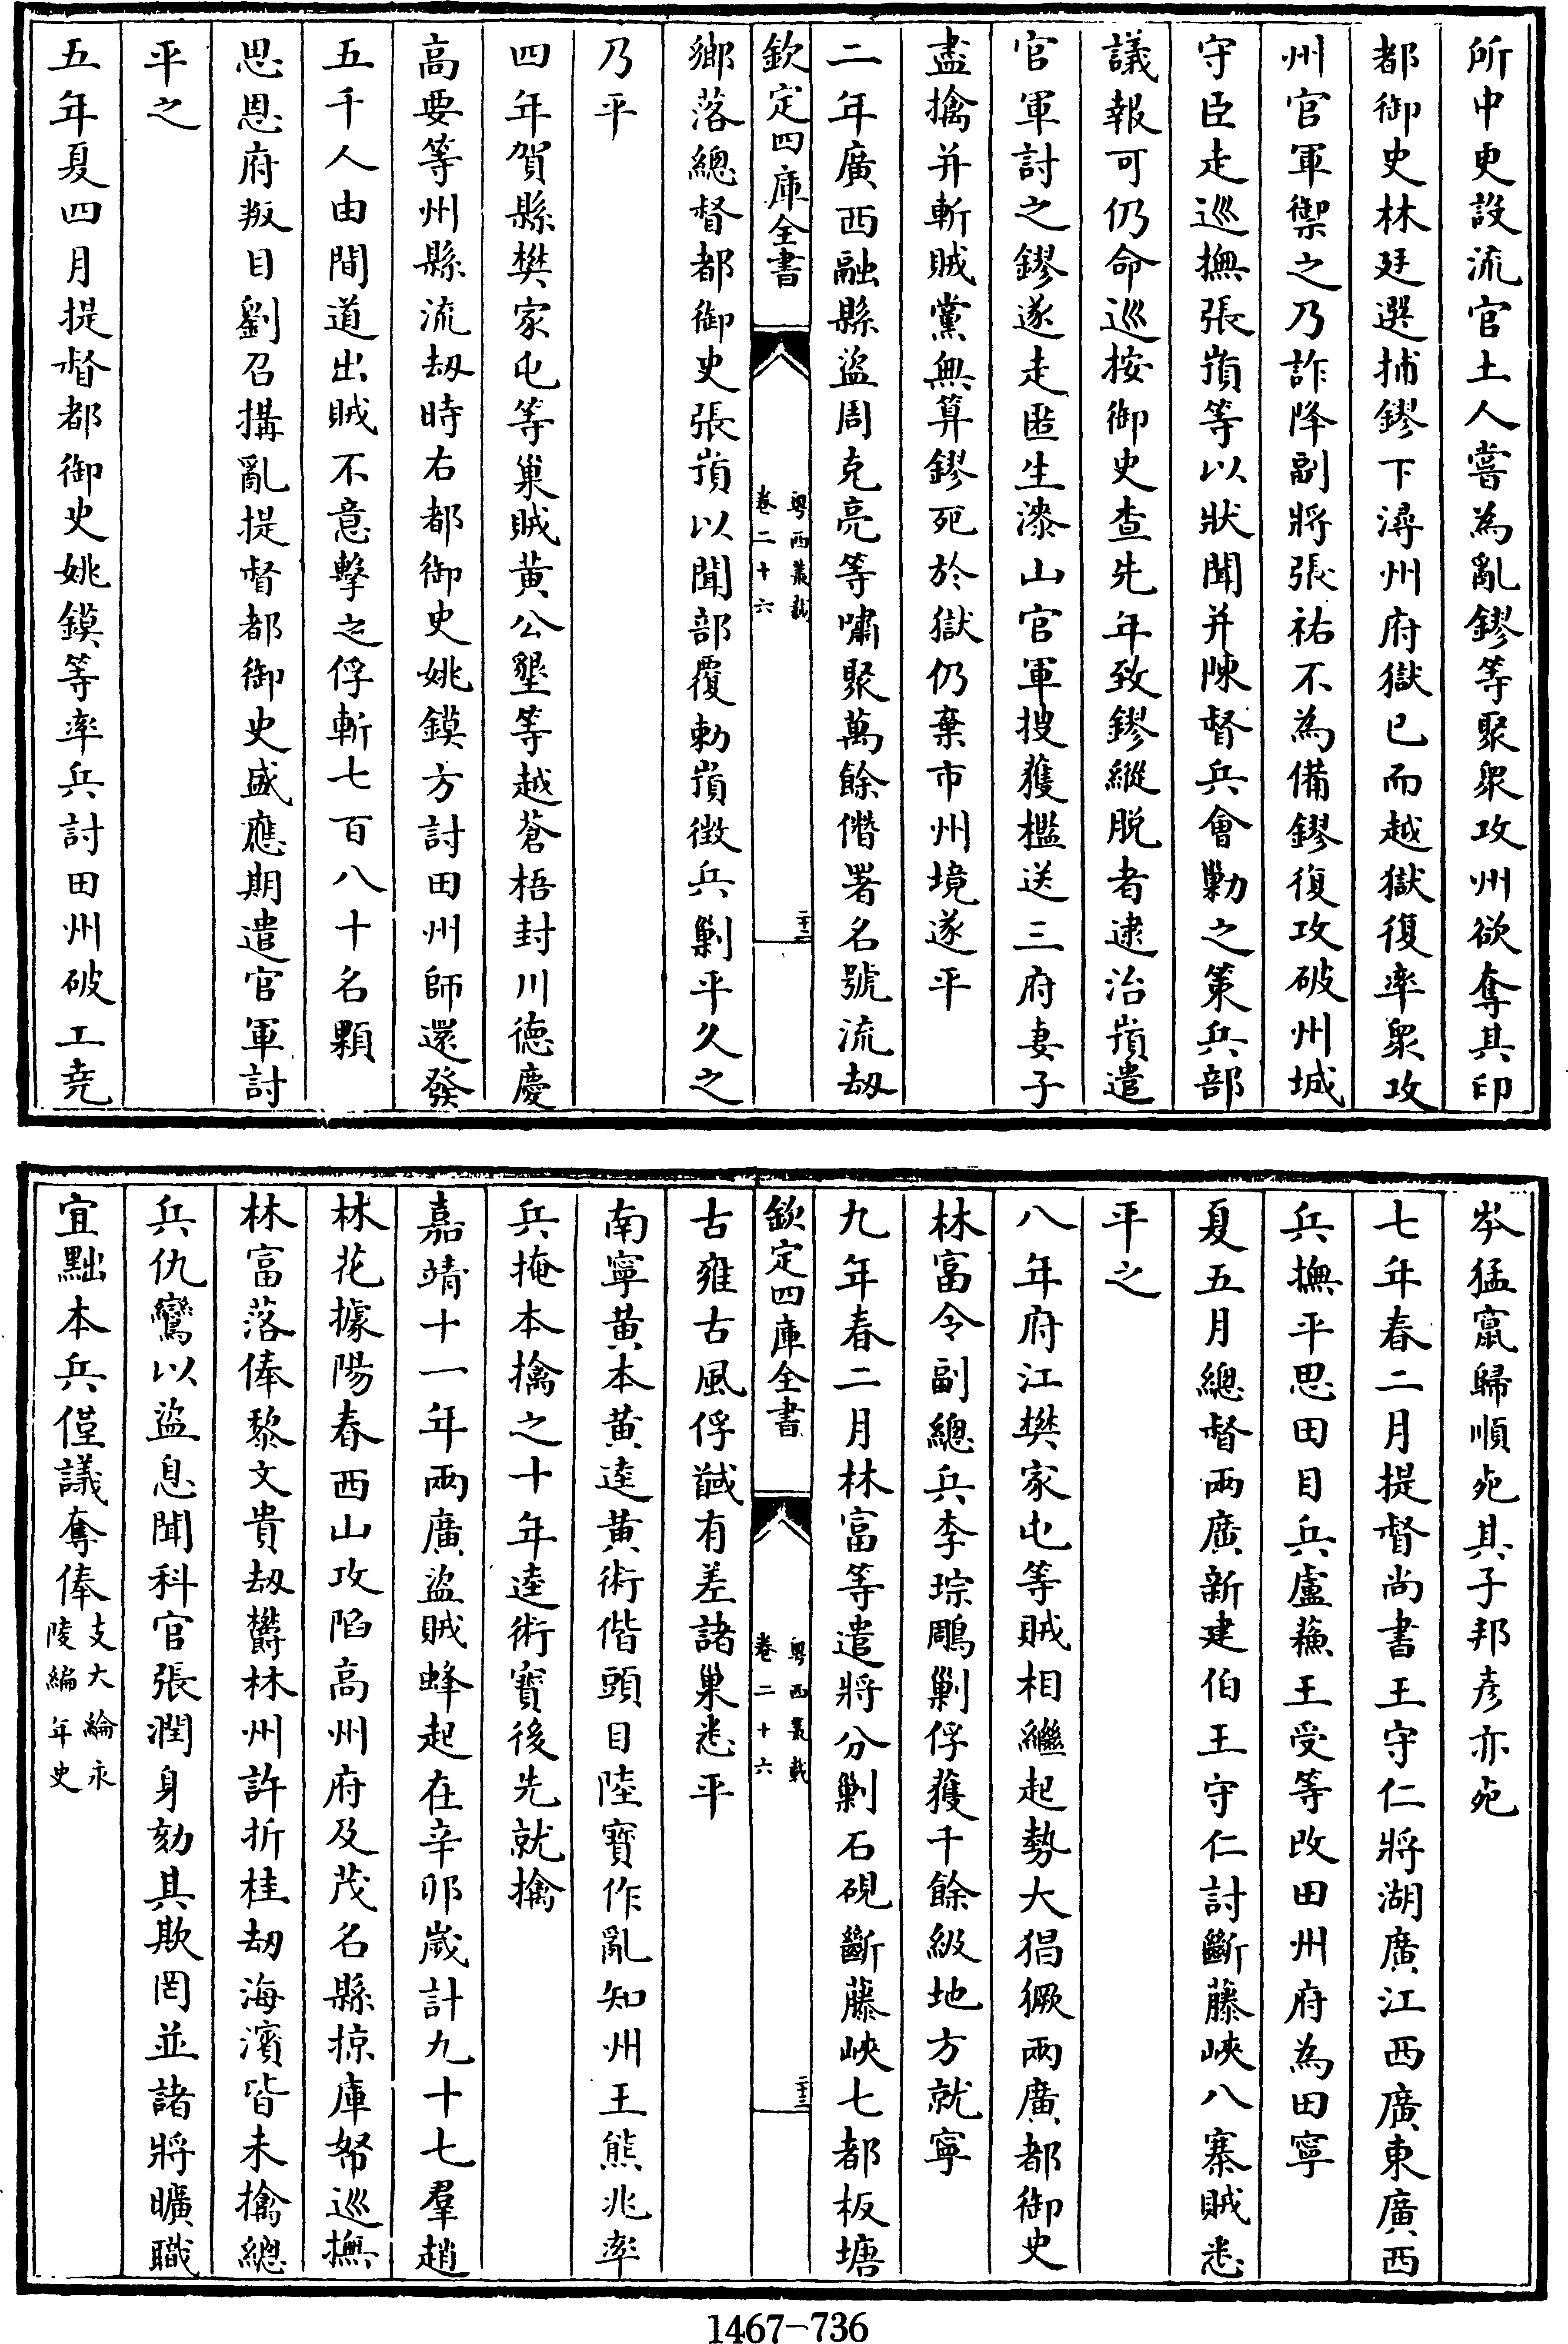 所中更設流官土人嘗為亂鏐等聚衆攻州欲奪其印
都御史林廷選捕鏐下潯州府獄已而越獄復率衆攻
州官軍禦之乃詐降副將張祐不為備鏐復攻破州城
守臣走巡撫張嵿等以狀聞并陳督兵會勦之策兵部
議報可仍命巡按御史查先年致鏐縱脱者逮治嵿遣
官軍討之鏐遂走匿生漆山官軍搜獲檻送三府妻子
盡擒并斬賊黨無算鏐死於獄仍棄市州境遂平
二年廣西融縣盜周克亮等嘯聚萬餘僭署名號流刼
欽定四庫全書
粤西叢載
卷二十六
二十三
鄉落總督都御史張嵿以聞部覆勅嵿徴兵剿平久之
乃平
四年賀縣樊家屯等巢賊黄公墾等越蒼梧封川德慶
高要等州縣流刼時右都御史姚鏌方討田州師還發
五千人由間道出賊不意擊之俘斬七百八十名顆
思恩府叛目劉召搆亂提督都御史盛應期遣官軍討
平之
五年夏四月提督都御史姚鏌等率兵討田州破工堯
岑猛竄歸順死其子邦彦亦死
七年春二月提督尚書王守仁將湖廣江西廣東廣西
兵撫平思田目兵盧蘓王受等改田州府為田寧
夏五月總督兩廣新建伯王守仁討斷藤峽八寨賊悉
平之
八年府江樊家屯等賊相繼起勢大猖獗兩廣都御史
林富令副總兵李琮鵰剿俘獲千餘級地方就寧
九年春二月林富等遣將分剿石硯斷藤峽七都板塘
欽定四庫全書
粤西叢載
卷二十六
二十三
古雍古風俘馘有差諸巢悉平
南寧黄本黄逵黄術偕頭目陸寶作亂知州王熊兆率
兵掩本擒之十年逵術寶後先就擒
嘉靖十一年兩廣盜賊蜂起在辛卯嵗計九十七羣趙
林花據陽春西山攻陷高州府及茂名縣掠庫帑巡撫
林富落俸黎文貴刼欝林州許折桂刼海濱皆未擒總
兵仇鸞以盜息聞科官張潤身劾其欺罔並諸將曠職
宜黜本兵僅議奪俸
支大綸永
陵編年史
1467-736